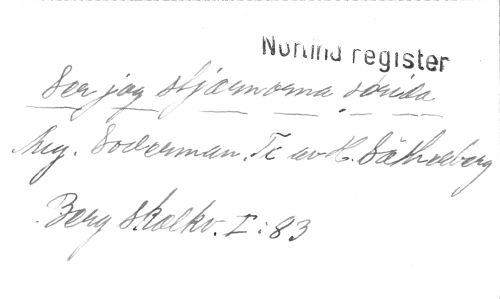 Norlind register
Ser jag stjärnorna sprida
Mg. Söderman. Tc av H. Sätherberg
Berg Skolkv. I: 83